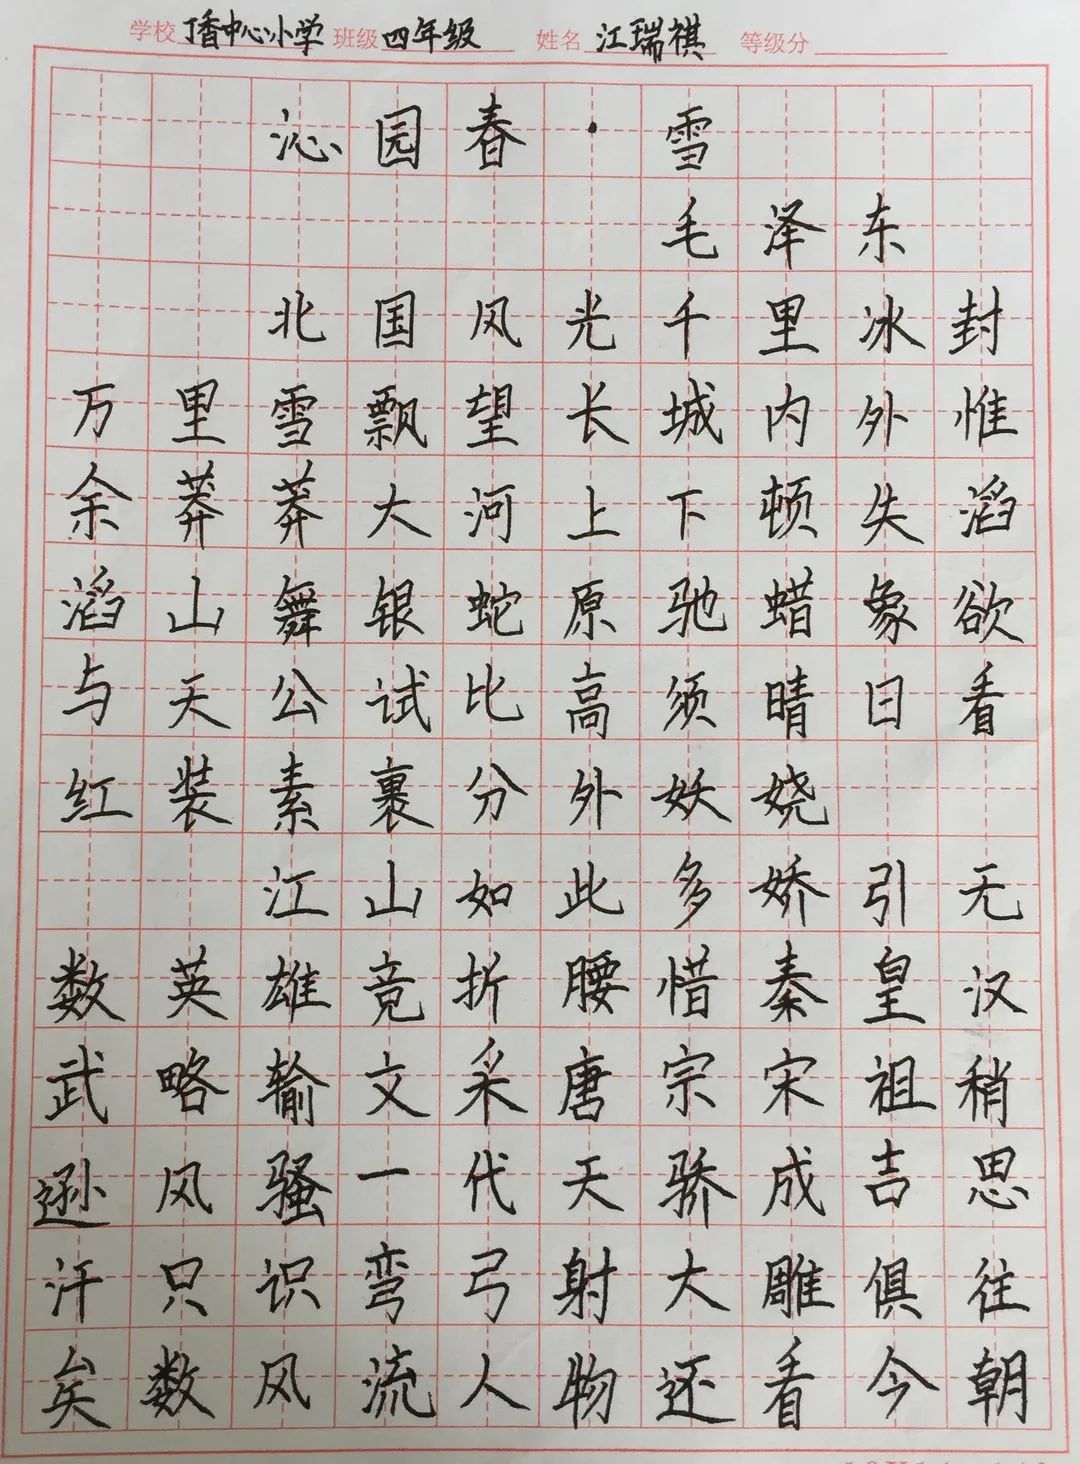 学校 丁香中心小学 班级 四年级 姓名 江瑞祺 等级分
沁园春·雪
毛泽东
北国风光千里冰封
万里雪飘望长城内外惟
余莽莽大河上下顿失滔
滔山舞银蛇原驰蜡象欲
与天公试比高须晴日看
红装素裹分外妖娆
江山如此多娇引无
数英雄竞折腰惜秦皇汉
武略输文采唐宗宋祖稍
逊风骚一代天骄成吉思
汗只识弯弓射大雕俱往
矣数风流人物还看今朝